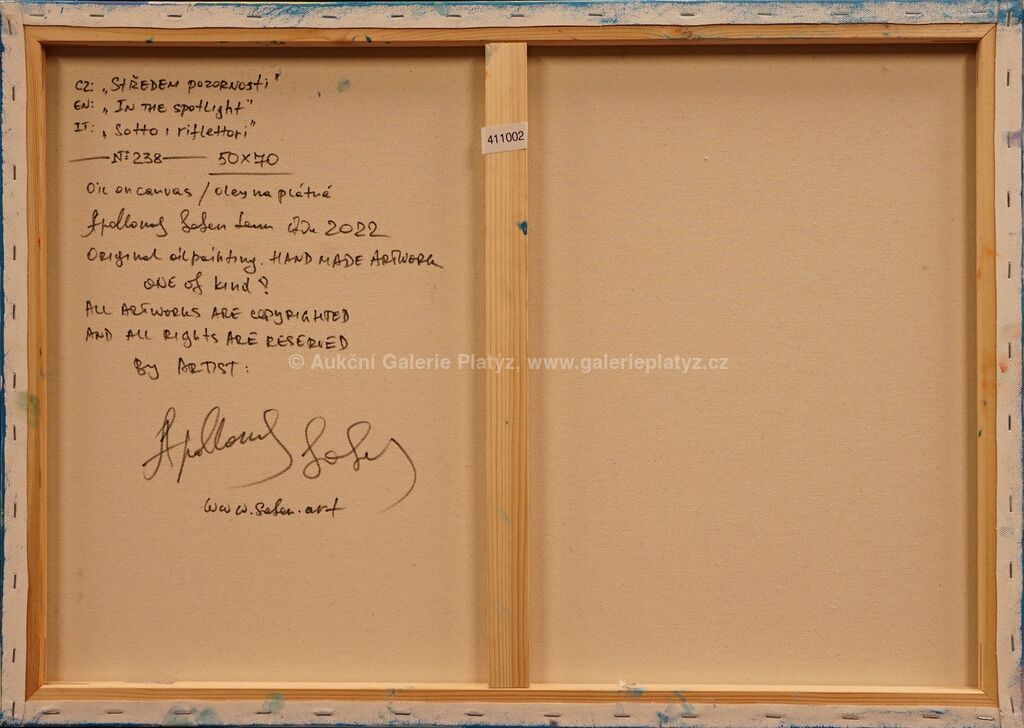 CZ: „STŘEDEM POZORNOSTI"
EN: „IN THE SPOTLIGHT"
IT: „Sotto i riflettori"
N: 238 50x70
Oil on canvas / olej na plátně
2022
Original oil painting. HAND MADE ARTWORK
ONE of kind
ALL ARTWORKS ARE COPYRIGHTED
AND ALL RIGHTS ARE RESERVED
By ARTIST:
411002
© Aukční Galerie Platýz, www.galerieplatyz.cz